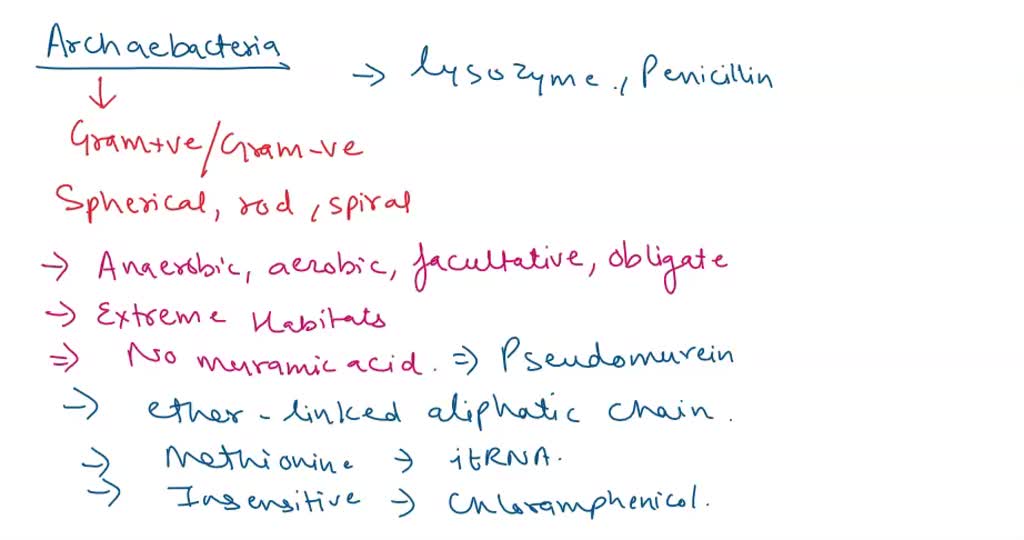 Archaebacteria
→ lysozyme, Penicillin
↓
Gram+ve/Gram-ve
Spherical, rod, spiral
→ Anaerobic, aerobic, facultative, obligate
→ Extreme Habitats
⇒ No muramic acid. ⇒ Pseudomurein
→ ether-linked aliphatic chain.
→ Methionine → itRNA.
→ Insensitive → Chloramphenicol.